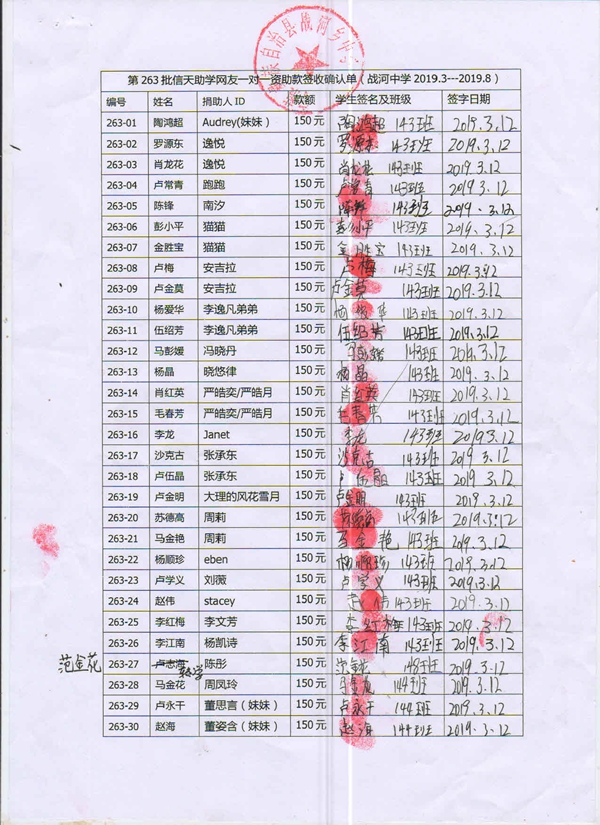 自治县战河乡中
第 263 批信天助学网友一对一资助款签收确认单（战河中学 2019.3---2019.8）
编号 姓名 捐助人 ID 款额 学生签名及班级 签字日期
263-01 陶鸿超 Audrey(妹妹） 150 元 陶鸿超 143班 2019.3.12
263-02 罗源东 逸悦 150 元 罗源东 143班 2019.3.12
263-03 肖龙花 逸悦 150 元 肖龙花 143班 2019.3.12
263-04 卢常青 跑跑 150 元 卢常青 143班 2019.3.12
263-05 陈锋 南汐 150 元 陈锋 143班 2019.3.12
263-06 彭小平 猫猫 150 元 彭小平 143班 2019.3.12
263-07 金胜宝 猫猫 150 元 金胜宝 143班 2019.3.12
263-08 卢梅 安吉拉 150 元 卢梅 143班 2019.3.12
263-09 卢金莫 安吉拉 150 元 卢金莫 143班 2019.3.12
263-10 杨爱华 李逸凡弟弟 150 元 杨爱华 143班 2019.3.12
263-11 伍绍芳 李逸凡弟弟 150 元 伍绍芳 143班 2019.3.12
263-12 马彭媛 冯晓丹 150 元 马彭媛 143班 2019.3.12
263-13 杨晶 晓悠律 150 元 杨晶 143班 2019.3.12
263-14 肖红英 严皓奕/严皓月 150 元 肖红英 143班 2019.3.12
263-15 毛春芳 严皓奕/严皓月 150 元 毛春芳 143班 2019.3.12
263-16 李龙 Janet 150 元 李龙 143班 2019.3.12
263-17 沙克古 张承东 150 元 沙克古 143班 2019.3.12
263-18 卢伍晶 张承东 150 元 卢伍晶 143班 2019.3.12
263-19 卢金明 大理的风花雪月 150 元 卢金明 143班 2019.3.12
263-20 苏德高 周莉 150 元 143班 2019.3.12
263-21 马金艳 周莉 150 元 马金艳 143班 2019.3.12
263-22 杨顺珍 eben 150 元 杨顺珍 143班 2019.3.12
263-23 卢学义 刘薇 150 元 卢学义 143班 2019.3.12
263-24 赵伟 stacey 150 元 赵伟 143班 2019.3.12
263-25 李红梅 李文芳 150 元 李红梅 143班 2019.3.12
263-26 李江南 杨凯诗 150 元 李江南 143班 2019.3.12
范金花 263-27 卢志海 转学 陈彤 150 元 范金花 148班 2019.3.12
263-28 马金花 周凤玲 150 元 马金花 144班 2019.3.12
263-29 卢永干 董思言（妹妹） 150 元 卢永干 144班 2019.3.12
263-30 赵海 董姿含（妹妹） 150 元 赵海 144班 2019.3.12